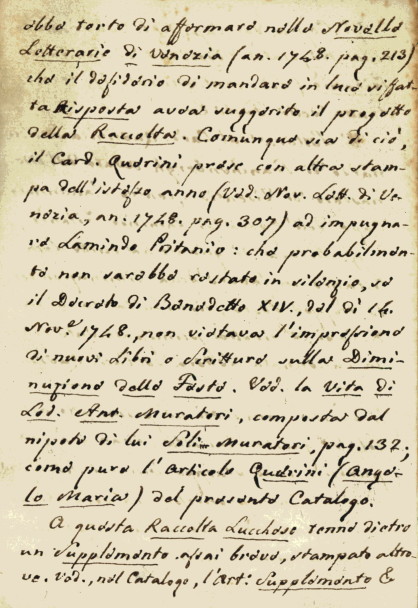 ebbe torto di affermare nelle Novelle
Letterarie di Venezia (an. 1748. pag. 213)
che il desiderio di mandare in luce siffat-
ta Risposta avea suggerito il progetto
della Raccolta. Comunque sia di ciò,
il Card. Querini prese con altra stam-
pa dell'istesso anno (Ved. Nov. Lett. di Ve-
nezia, an. 1748. pag. 307) ad impugna-
re Lamindo Pritanio: che probabilmen-
te non sarebbe restato in silenzio, se
il Decreto di Benedetto XIV., del dì 14.
Nov.e 1748., non vietava l'impressione
di nuovi Libri o Scritture sulla Dimi-
nuzione delle Feste. Ved. la Vita di
Lod. Ant. Muratori, composta dal
nipote di lui Soli-Muratori, pag. 132;
come pure l'articolo Querini (Ange-
lo Maria) del presente Catalogo.
A questa Raccolta Lucchese tenne dietro
un Supplemento assai breve, stampato altro-
ve. Ved., nel Catalogo, l'Art: Supplemento &